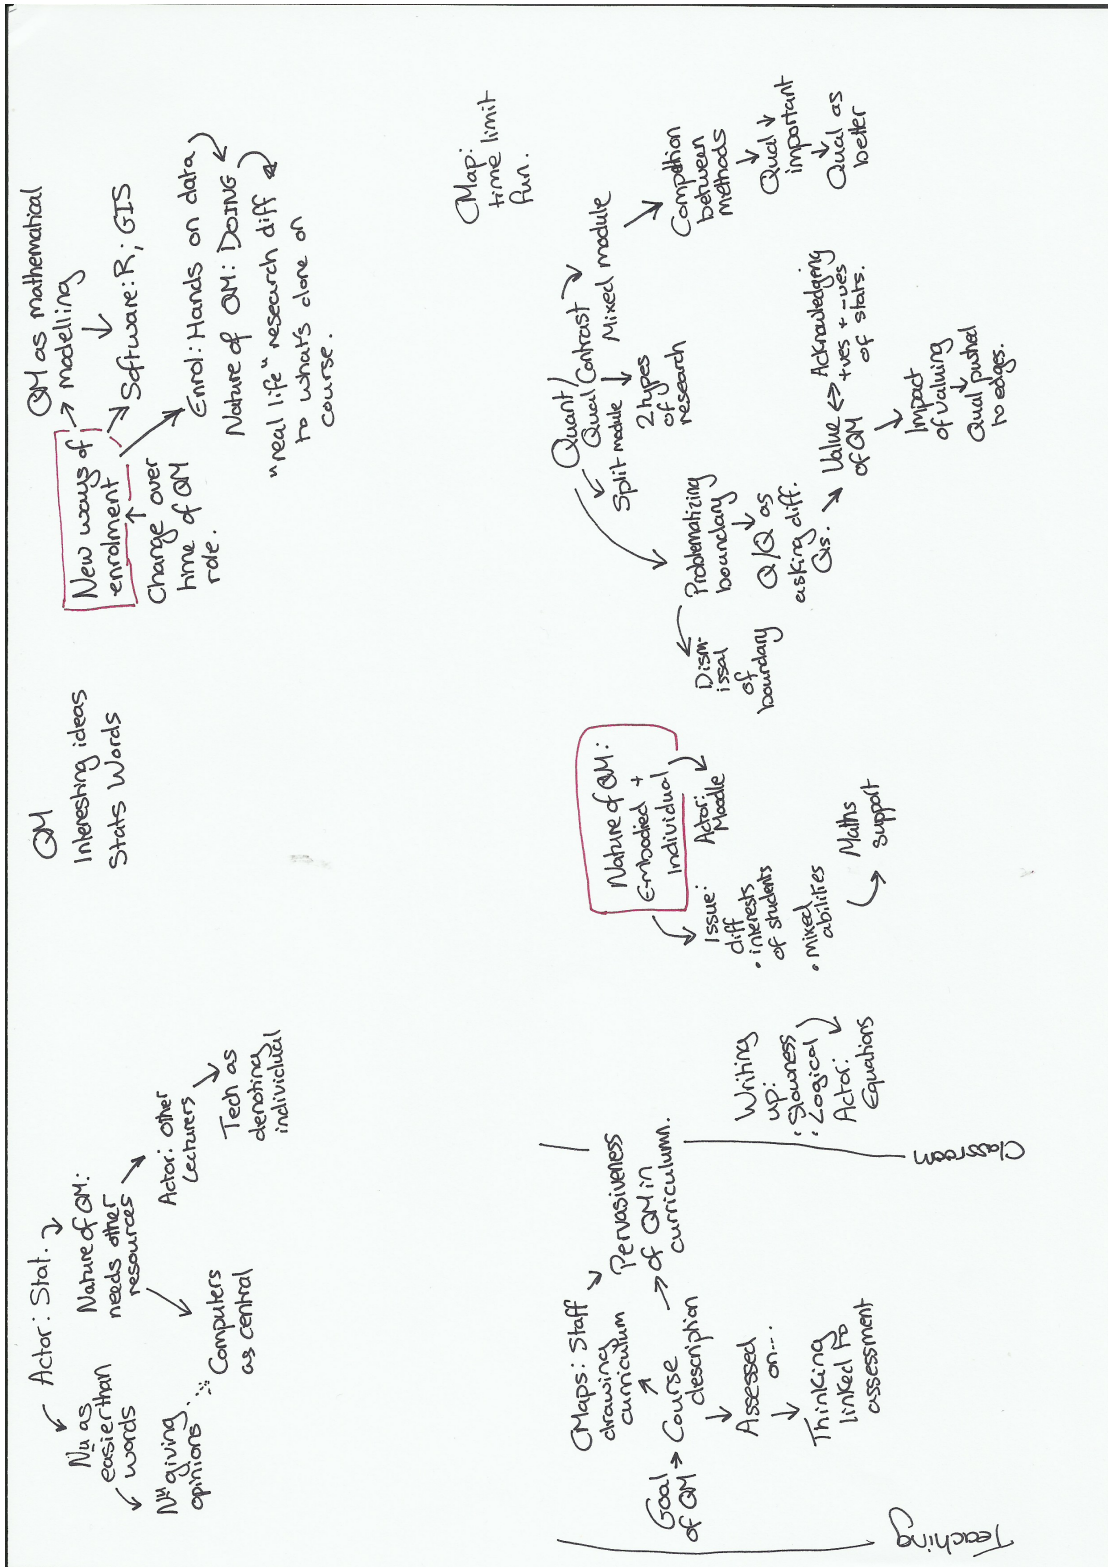 Actor: Stat.
Nu as
easier than
words
Nu giving
opinions
Nature of QM:
needs other
resources
Computers
as central
Actor: other
Lecturers
Tech as
denoting
individual
QM
Interesting ideas
Stats Words
New ways of
enrolment
Change over
time of QM
role.
QM as mathematical
modelling
Software: R; GIS
Enrol: Hands on data
Nature of QM: DOING
"real life" research diff
to what's done on
course.
CMap:
time limit
fun.
CMaps: Staff
drawing
curriculum
Goal
of QM
Course
description
Assessed
on...
Thinking
linked to
assessment
Pervasiveness
of QM in
curriculumn.
Teaching
Classroom
Writing
up:
• Slowness
• Logical
Actor:
Equations
Nature of QM:
Embodied +
individual
Issue:
diff
• interests
of students
• mixed
abilities
Maths
support
Actor:
Moodle
Quant/
Qual Contrast
Split module
2 types
of research
Mixed module
Competition
between
methods
Qual
important
Qual as
better
Problematizing
boundary
Dism-
issal
of
boundary
Q/Q as
asking diff.
Qs.
Value
of QM
Acknowledging
+ves + -ves
of stats.
Impact
of valuing
Qual pushed
to edges.